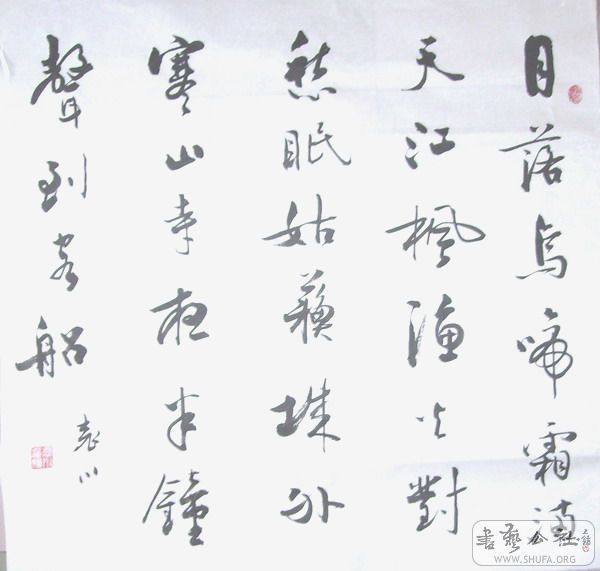 月落烏啼霜滿
天江楓漁火對
愁眠姑蘇城外
寒山寺夜半鐘
聲到客船
袁川
書藝公社
WWW.SHUFA.ORG